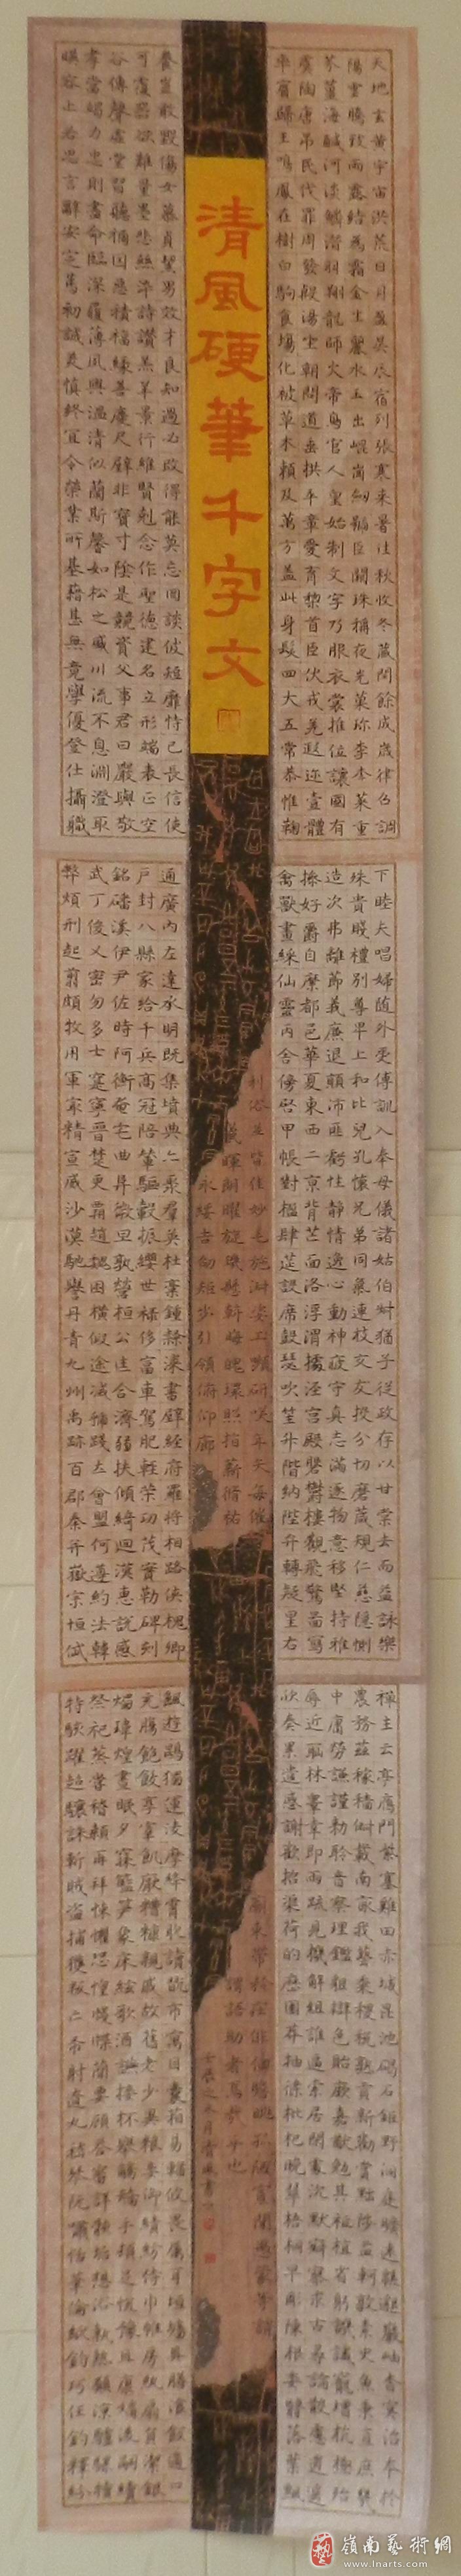 清風硬筆千字文
天地玄黃宇宙洪荒日月盈昃辰宿列張寒來暑往秋收冬藏閏餘成歲律呂調
陽雲騰致雨露結為霜金生麗水玉出崐崗劍號巨闕珠稱夜光菓珍李柰菜重
芥薑海鹹河淡鱗潛羽翔龍師火帝鳥官人皇始制文字乃服衣裳推位讓國有
虞陶唐吊民伐罪周發殷湯坐朝問道垂拱平章愛育黎首臣伏戎羌遐邇壹體
率賓歸王鳴鳳在樹白駒食場化被草木賴及萬方蓋此身髮四大五常恭惟鞠
養豈敢毀傷女慕貞絜男效才良知過必改得能莫忘罔談彼短靡恃己長信使
可覆器欲難量墨悲絲染詩讚羔羊景行維賢剋念作聖德建名立形端表正空
谷傳聲虛堂習聽禍因惡積福緣善慶尺璧非寶寸陰是競資父事君曰嚴與敬
孝當竭力忠則盡命臨深履薄夙興溫清似蘭斯馨如松之盛川流不息淵澄取
暎容止若思言辭安定篤初誠美慎終宜令榮業所基藉甚無竟學優登仕攝職
下睦夫唱婦隨外受傅訓入奉母儀諸姑伯叔猶子從政存以甘棠去而益詠樂
殊貴賤禮別尊卑上和比兒孔懷兄弟同氣連枝交友投分切磨箴規仁慈隱惻
造次弗離節義廉退顛沛匪虧性靜情逸心動神疲守真志滿逐物意移堅持雅
操好爵自縻都邑華夏東西二京背芒面洛浮渭據涇宮殿盤鬱樓觀飛驚圖寫
禽獸畫綵仙靈丙舍傍啟甲帳對楹肆筵設席鼓瑟吹笙升階納陛弁轉疑星右
通廣內左達承明既集墳典亦聚羣英杜稾鍾隸漆書壁經府羅將相路俠槐卿
戶封八縣家給千兵高冠陪輦驅轂振纓世祿侈富車駕肥輕策功茂實勒碑刻
銘磻溪伊尹佐時阿衡奄宅曲阜微旦孰營桓公匡合濟弱扶傾綺迴漢惠說感
武丁俊乂密勿多士寔寧晉楚更霸趙魏困橫假途滅虢踐土會盟何遵約法韓
弊煩刑起翦頗牧用軍最精宣威沙漠馳譽丹青九州禹跡百郡秦并嶽宗恒岱
禪主云亭鴈門紫塞雞田赤城昆池碣石鉅野洞庭曠遠緜邈巖岫杳冥治本於
農務茲稼穡俶載南畝我藝黍稷稅熟貢新勸賞黜陟孟軻敦素史魚秉直庶幾
中庸勞謙謹勑聆音察理鑑貌辯色貽厥嘉猷勉其祗植省躬譏誡寵增抗極殆
辱近恥林皋幸即兩疏見機解組誰逼索居閑處沉默寂寥求古尋論散慮逍遙
欣奏累遣慼謝歡招渠荷的歷園莽抽條枇杷晚翠梧桐早彫陳根委翳落葉飄
颻遊鵾獨運凌摩絳霄耽讀翫市寓目囊箱易輶攸畏屬耳垣墻具膳湌飯適口
充腸飽飫烹宰飢厭糟糠親戚故舊老少異糧妾御績紡侍巾帷房紈扇員潔銀
燭煒煌晝眠夕寐籃笋象床絃歌酒讌接杯舉觴矯手頓足悅豫且康嫡後嗣續
祭祀蒸嘗稽顙再拜悚懼恐惶牋牒簡要顧答審詳骸垢想浴執熱願涼驢騾犢
特駭躍超驤誅斬賊盜捕獲叛亡布射遼丸嵇琴阮嘯恬筆倫紙鈞巧任釣釋紛
利俗並皆佳妙毛施淑姿工顰研笑年矢每催
曦暉朗曜旋璣懸斡晦魄環照指薪脩祜
永綏吉劭矩步引領俯仰廊
廟束帶矜莊徘徊瞻眺孤陋寡聞愚蒙等誚
謂語助者焉哉乎也
嶺南藝術網
www.lnarts.com